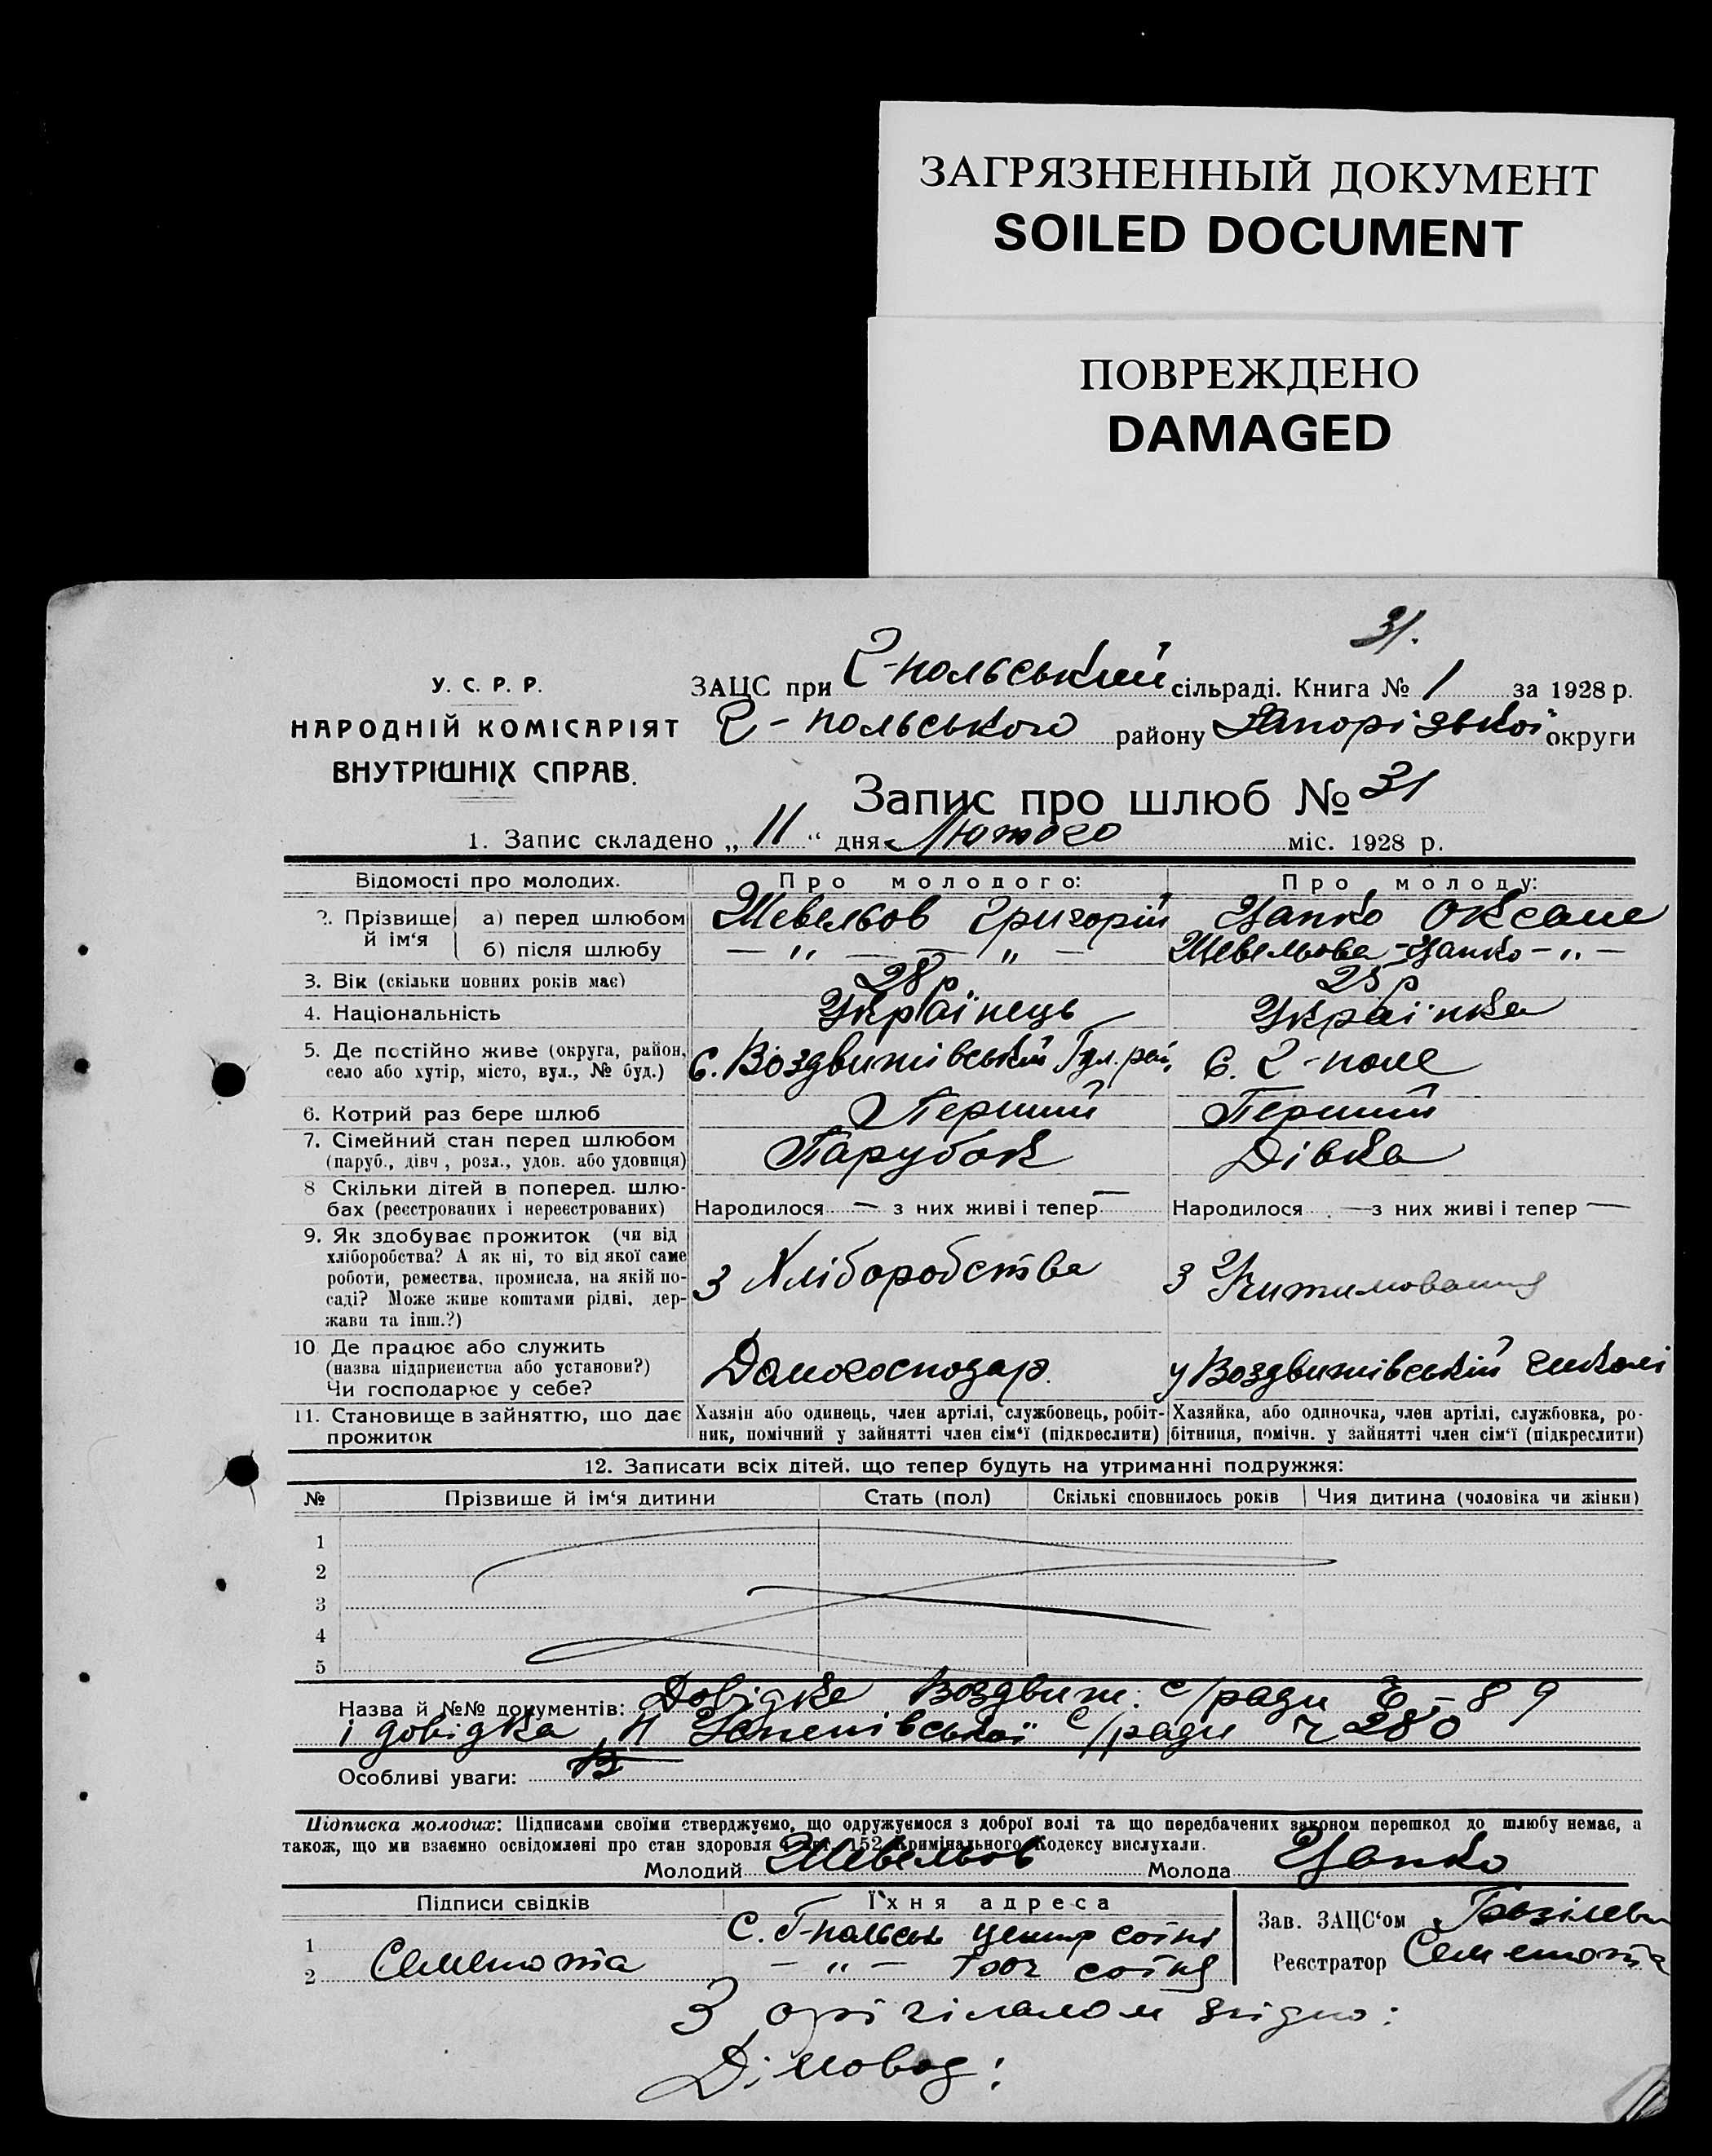 ЗАГРЯЗНЕННЫЙ ДОКУМЕНТ
SOILED DOCUMENT
ПОВРЕЖДЕНО
DAMAGED
31.
У. С. Р. Р.
НАРОДНІЙ КОМІСАРІЯТ
ВНУТРІШНІХ СПРАВ.
ЗАЦС при Г-польський сільраді. Книга № 1 за 1928 р.
Г-польського району Запорізької округи
Запис про шлюб № 31
1. Запис складено „ 11 “ дня Лютого міс. 1928 р.
Відомості про молодих. Про молодого: Про молоду:
2. Прізвище й ім‘я а) перед шлюбом Шевельов Григорій Цапко Оксана
б) після шлюбу — „ — — „ — Шевельова-Цапко — „ —
3. Вік (скільки повних років має) 28 р 23 р
4. Національність Українець Українка
5. Де постійно живе (округа, район, село або хутір, місто, вул., № буд.) с. Воздвижівський Гул. рай. с. Г-поле
6. Котрий раз бере шлюб Перший Перший
7. Сімейний стан перед шлюбом (паруб., дівч., розл., удов. або удовиця) Парубок Дівка
8 Скільки дітей в поперед. шлюбах (реєстрованих і нереєстрованих) Народилося — з них живі і тепер — Народилося — з них живі і тепер —
9. Як здобуває прожиток (чи від хліборобства? А як ні, то від якої саме роботи, ремества, промисла, на якій посаді? Може живе коштами рідні, держави та інш.?) З Хліборобства З Учителювання
10. Де працює або служить (назва підприємства або установи?) Чи господарює у себе? Домогосподар. у Воздвижівській школі
11. Становище в зайняттю, що дає прожиток Хазяїн або одинець, член артілі, службовець, робітник, помічний у зайнятті член сім‘ї (підкреслити) Хазяйка, або одиночка, член артілі, службовка, робітниця, помічн. у зайнятті член сім‘ї (підкреслити)
12. Записати всіх дітей, що тепер будуть на утриманні подружжя:
№ Прізвище й ім‘я дитини Стать (пол) Скількі сповнилось років Чия дитина (чоловіка чи жінки)
1
2
3
4
5
Назва й №№ документів: Довідка Воздвиж. с/ради 89
і довідка Успенівської с/ради ч 280
Особливі уваги:
Підписка молодих: Підписами своїми стверджуємо, що одружуємося з доброї волі та що передбачених законом перешкод до шлюбу немає, а
також, що ми взаємно освідомлені про стан здоровля і арт. 152 Кримінального Кодексу вислухали.
Молодий Шевельов Молода Цапко
Підписи свідків Їхня адреса
1 С. Г-польсь центр сотні
2 Семенота — „ — сотня
Зав. ЗАЦС‘ом
Реєстратор Семенота
З орігіналом згідно:
Діловод: